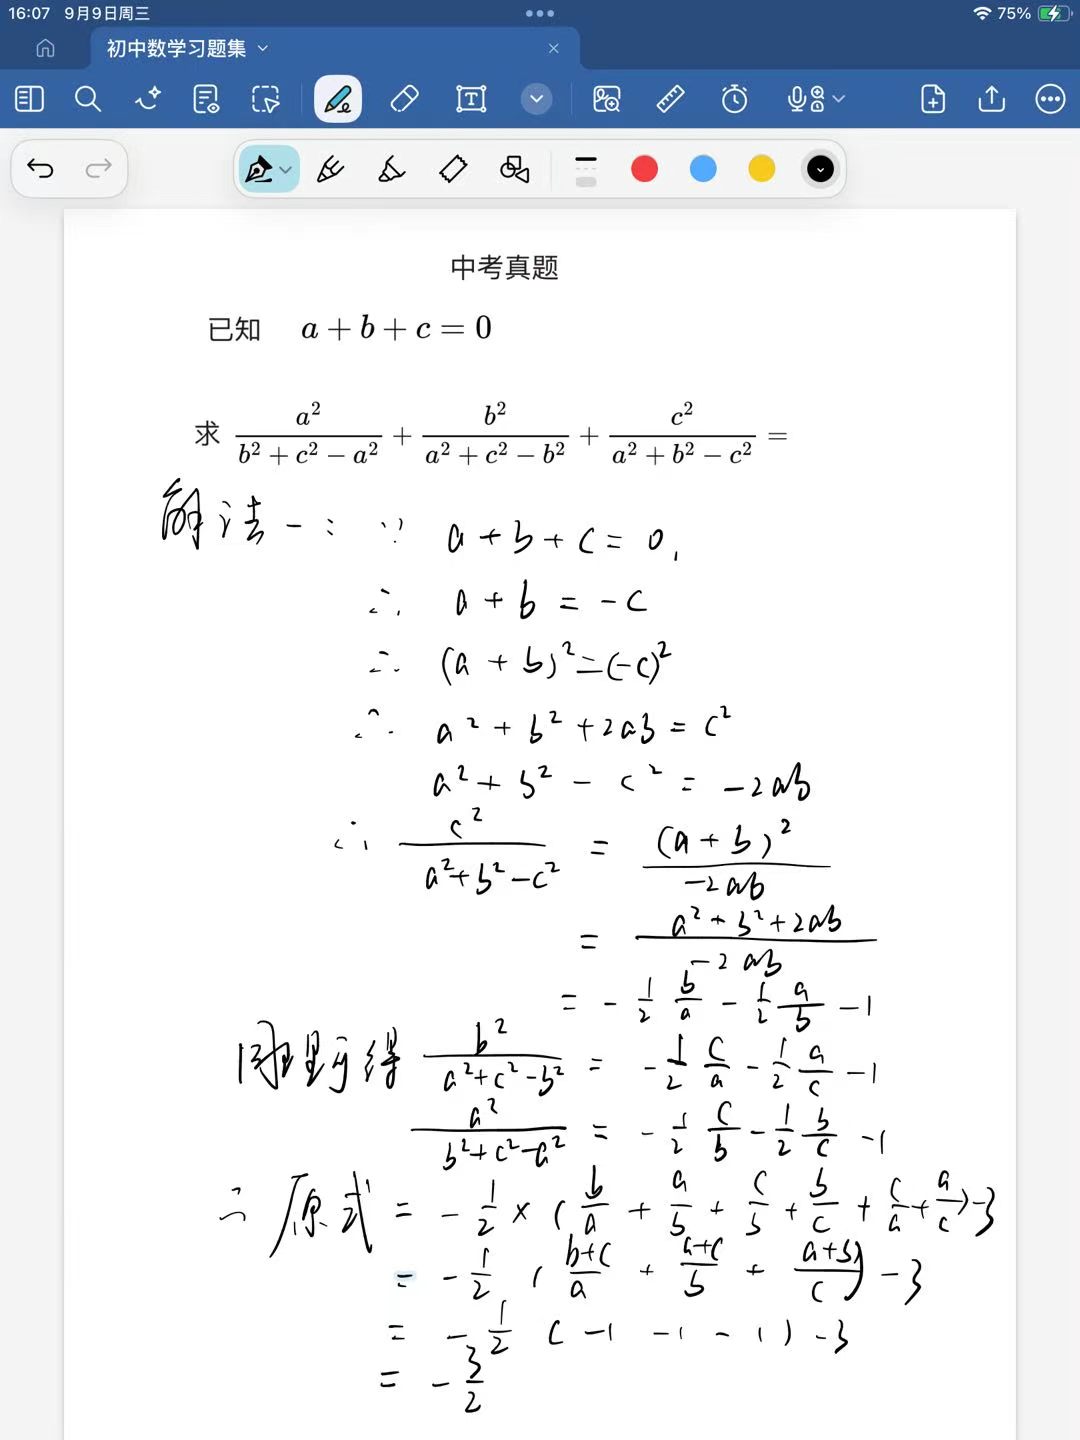 16:07 9月9日周三 75%
初中数学习题集
中考真题
已知 a + b + c = 0
求 a²/(b² + c² − a²) + b²/(a² + c² − b²) + c²/(a² + b² − c²) =
解法一: ∵ a + b + c = 0,
∴ a + b = −c
∴ (a + b)² = (−c)²
∴ a² + b² + 2ab = c²
a² + b² − c² = −2ab
∴ c²/(a² + b² − c²) = (a + b)²/(−2ab)
= (a² + b² + 2ab)/(−2ab)
= − 1/2 b/a − 1/2 a/b − 1
同理可得 b²/(a² + c² − b²) = − 1/2 c/a − 1/2 a/c − 1
a²/(b² + c² − a²) = − 1/2 c/b − 1/2 b/c − 1
∴ 原式 = − 1/2 × (b/a + a/b + c/b + b/c + c/a + a/c) − 3
= − 1/2 ((b+c)/a + (a+c)/b + (a+b)/c) − 3
= − 1/2 (−1 −1 −1) − 3
= − 3/2